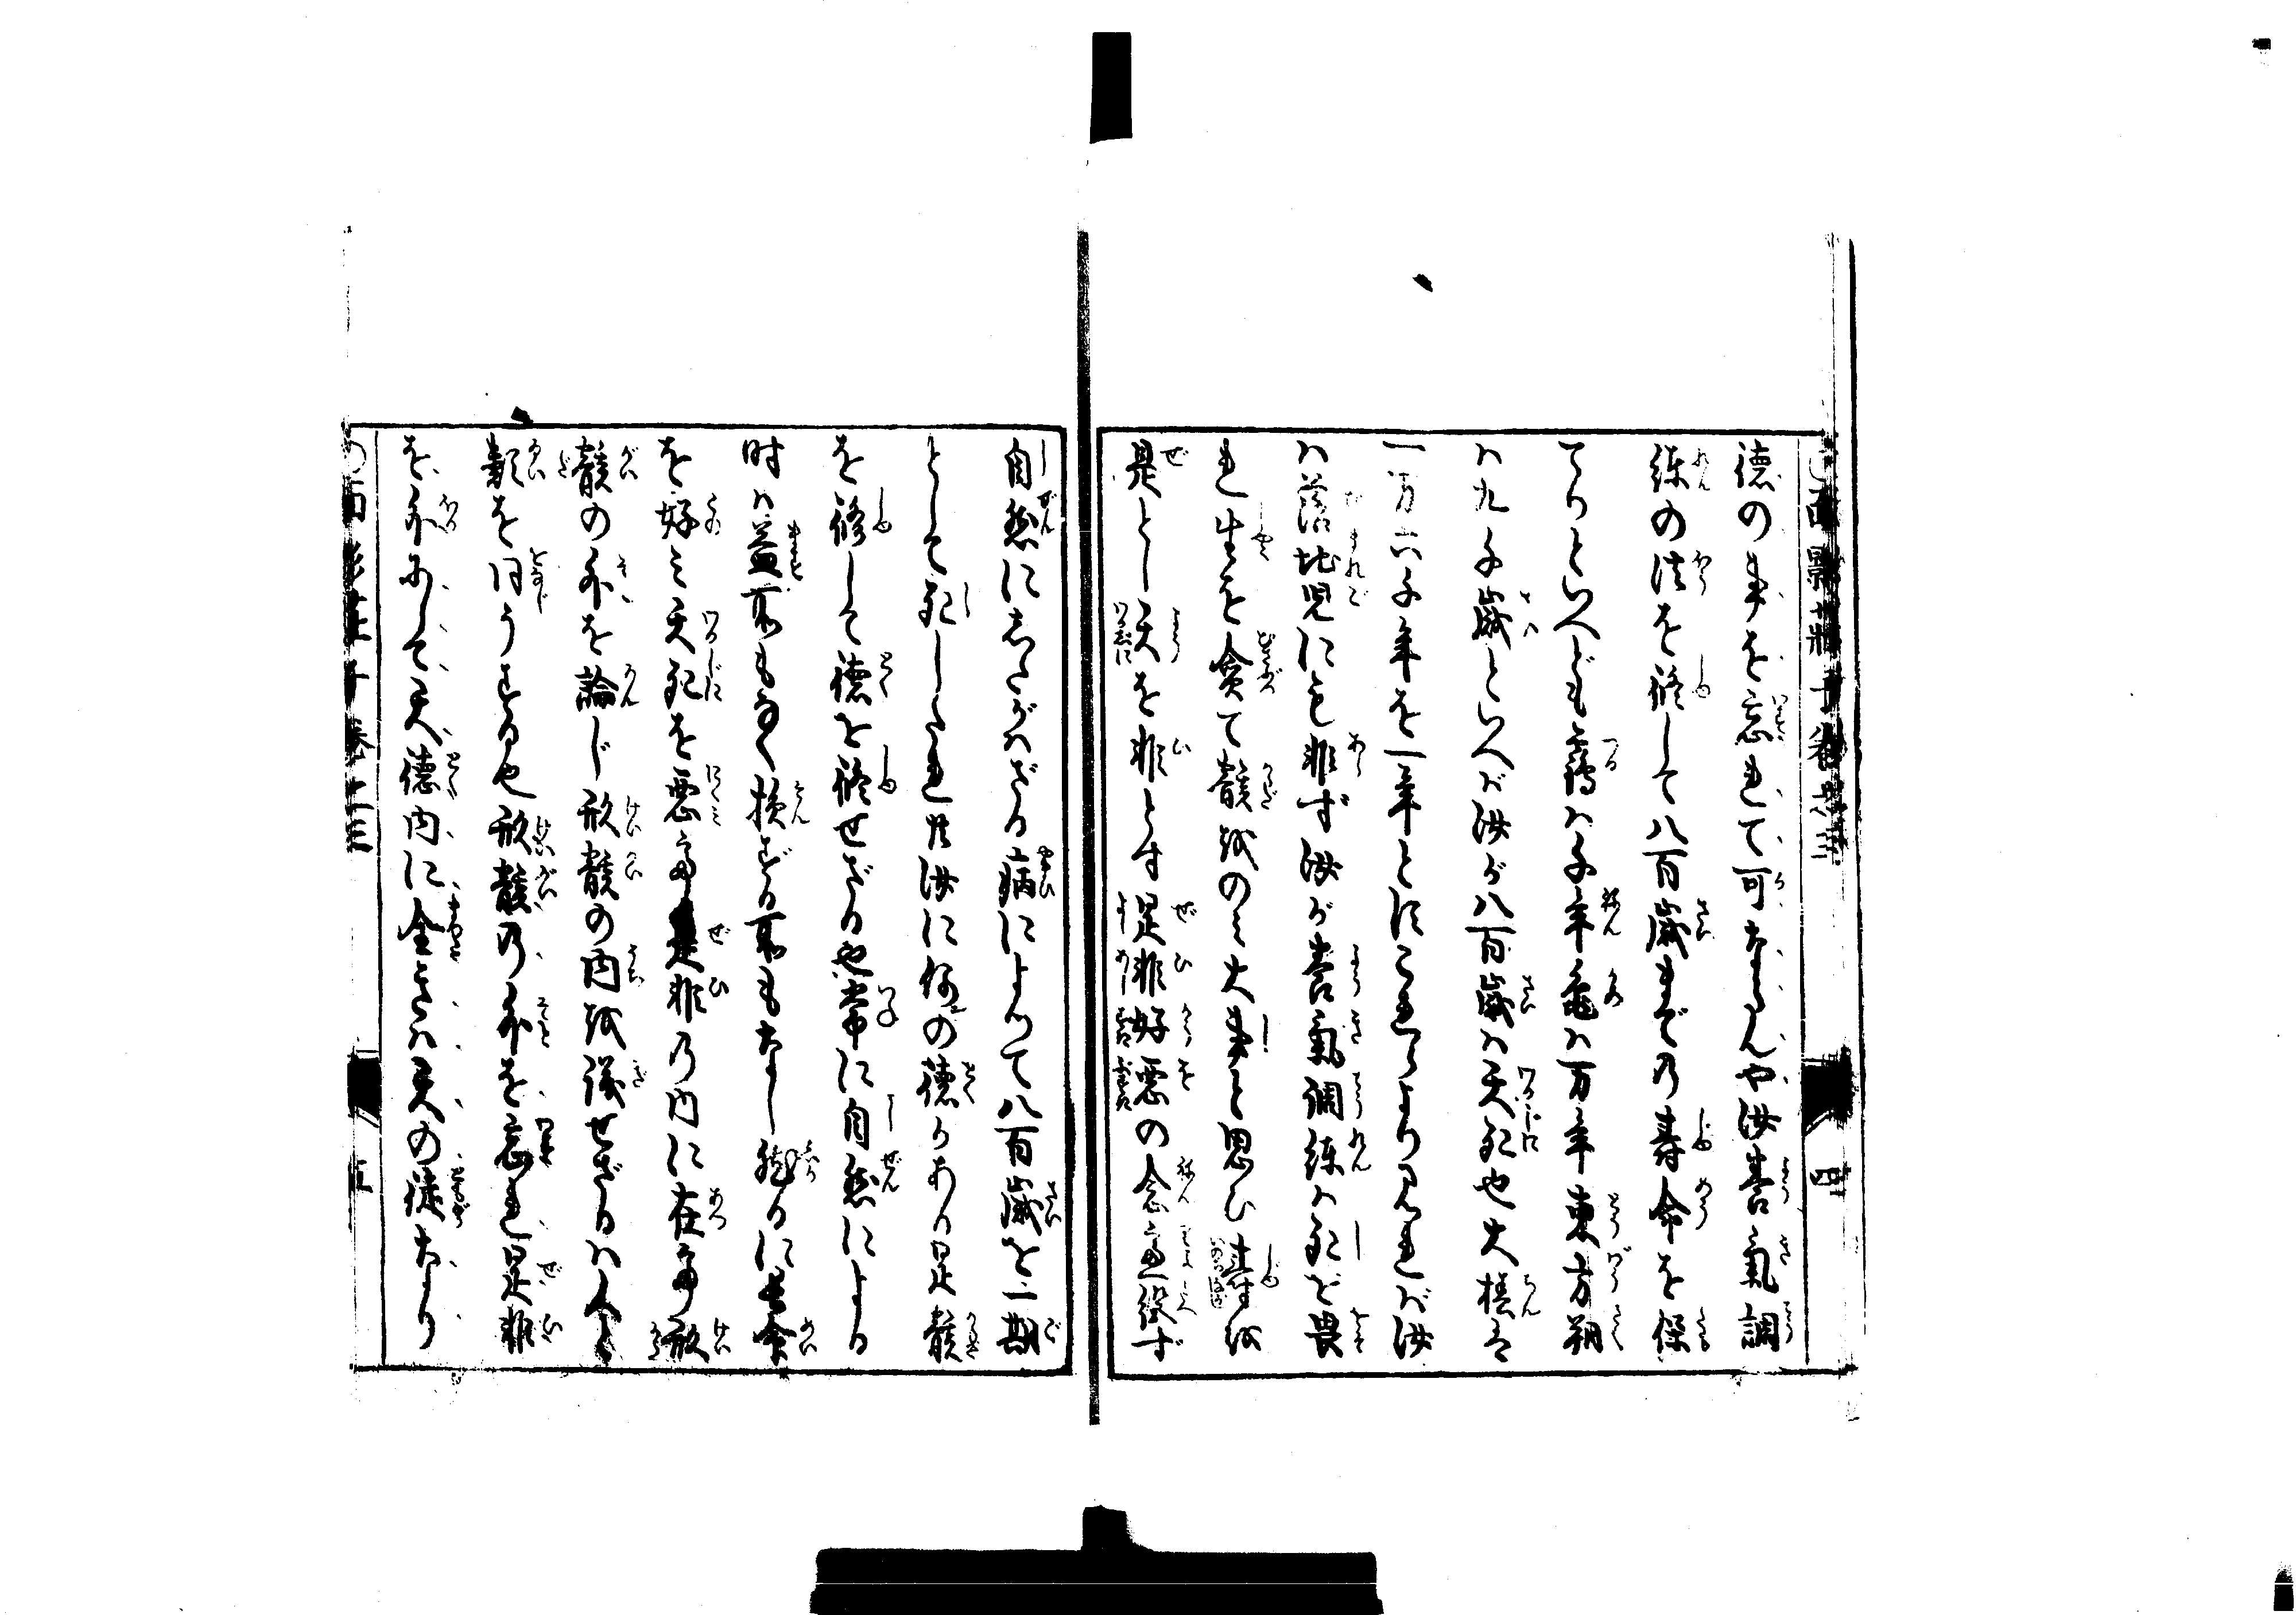 徳の事を忘れて可ならんや汝養氣調
練の法を修して八百歳までの寿命を保
てりといへども鶴ハ千年亀ハ万年東方朔
ハ九千歳といへバ汝が八百歳ハ夭死也大椿は
一万六千年を一年とすこれらより見れバ汝
ハ落地児にも非ず汝が養氣調練ハ死を畏
れ生を貪て骸のミ大事と思ひ寿を
是とし夭を非とす是非好悪の念慮絶ず
自然にしたがハざる病によつて八百歳を一期
として死したれ共汝に何の徳かある是骸
を修して徳を修せざる也常に自然による
時ハ益所もなく損ずる所もなし然るに長命
を好ミ夭死を悪而是非の内に在而形
骸の外を論じ形骸の内を議せざるハ人と
類を同うする也形骸の外を忘れ是非
を外にして天徳内に全きハ天の徒なり